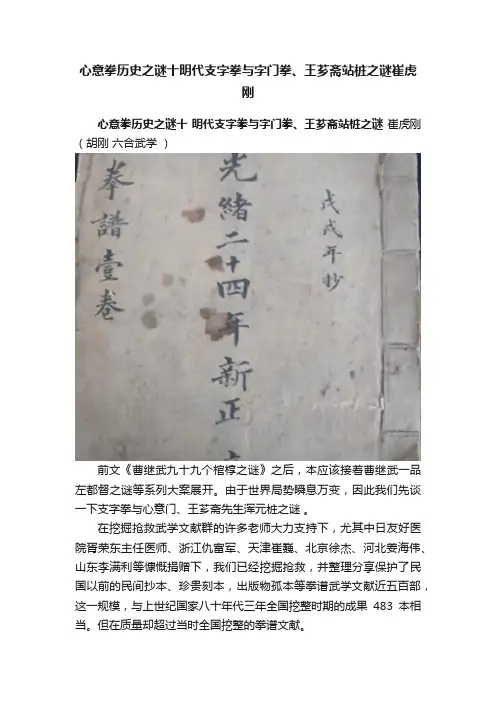 心意拳历史之谜十明代支字拳与字门拳、王芗斋站桩之谜崔虎
刚
心意拳历史之谜十 明代支字拳与字门拳、王芗斋站桩之谜 崔虎刚
（胡刚 六合武学 ）
戊戌年抄
光緒二十四年新正
拳譜壹卷
前文《曹继武九十九个棺椁之谜》之后，本应该接着曹继武一品
左都督之谜等系列大案展开。由于世界局势瞬息万变，因此我们先谈
一下支字拳与心意门、王芗斋先生浑元桩之谜 。
在挖掘抢救武学文献群的许多老师大力支持下，尤其中日友好医
院胥荣东主任医师、浙江仇富军、天津崔巍、北京徐杰、河北姜海伟、
山东李满利等慷慨捐赠下，我们已经挖掘抢救，并整理分享保护了民
国以前的民间抄本、珍贵刻本，出版物孤本等拳谱武学文献近五百部，
这一规模，与上世纪国家八十年代三年全国挖整时期的成果 483 本相
当。但在质量却超过当时全国挖整的拳谱文献。